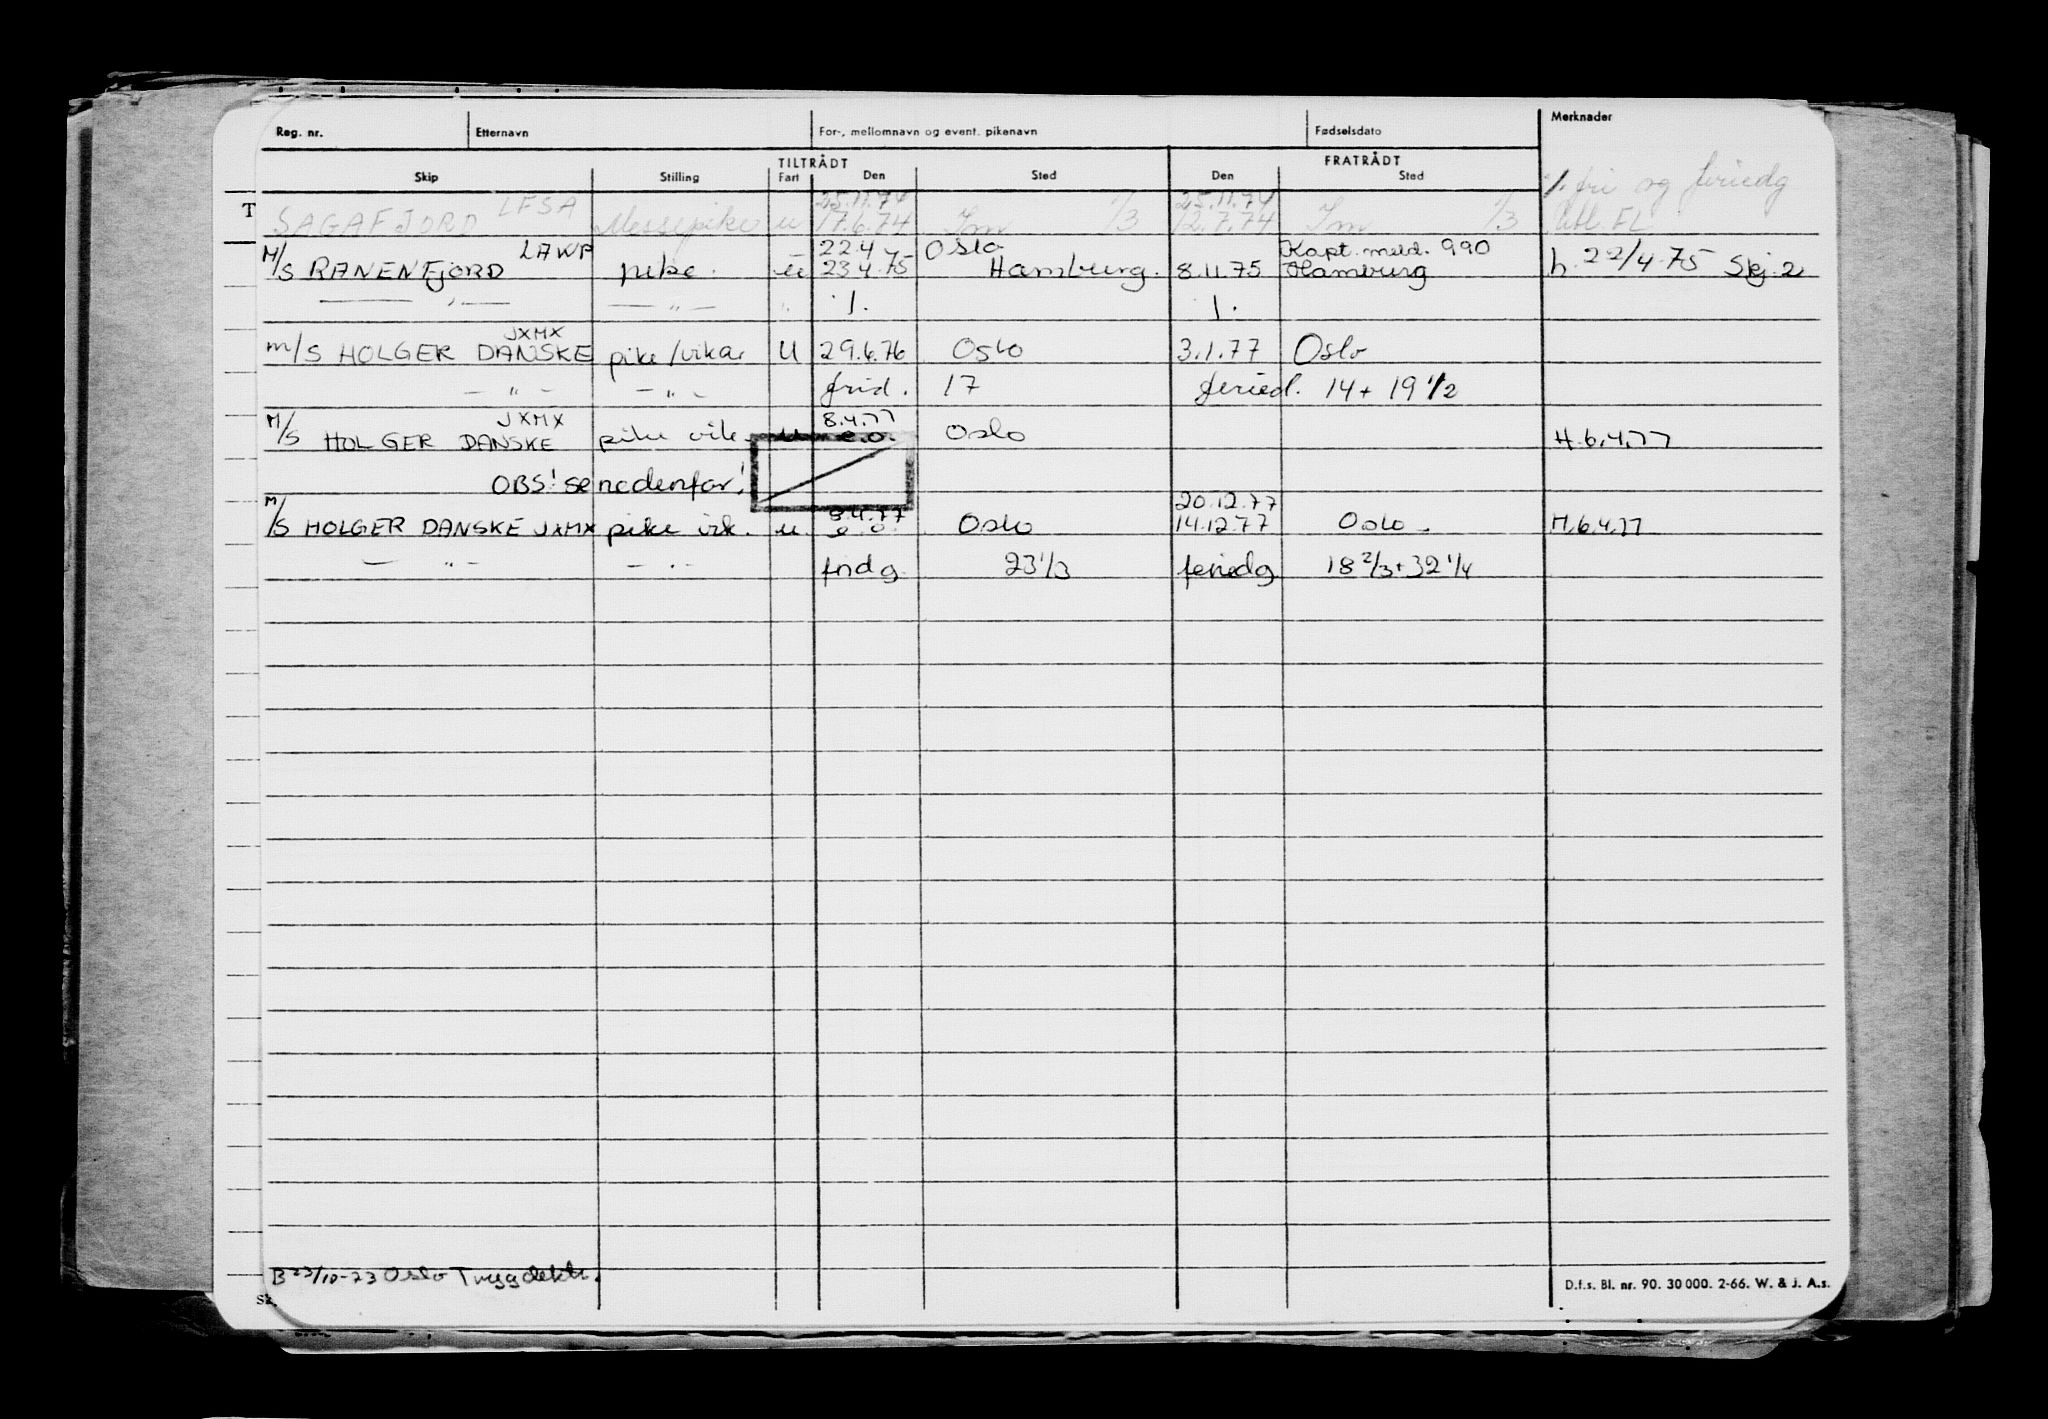 Reg. nr. Etternavn For-, mellomnavn og event. pikenavn Fødselsdato Merknader
TILTRÅDT FRATRÅDT
Skip Stilling Fart Den Sted Den Sted
T
LFSA 25.11.74 25.11.74 ./. fri og feriedg
SAGAFJORD Messepike u 17.6.74 1/3 12.7.74 1/3 FL
LAWP 22.4 Oslo Kapt. meld. 990
M/S RANENFJORD pike. u 23.4.75 Hamburg. 8.11.75 Hamburg h. 22/4-75 Skj. 2
— " — — " — " ./. ./.
JXMX
m/S HOLGER DANSKE pike/vikar U 29.6.76 Oslo 3.1.77 Oslo
— " — — " — frid. 17 feried. 14 + 19 1/2
JXMX 8.4.77
M/S HOLGER DANSKE pike vik. u e.o. Oslo H.6.4.77
OBS! se nedenfor!
8.4.77 20.12.77
M/S HOLGER DANSKE JXMX pike vik. u. e.o. Oslo 14.12.77 Oslo. H.6.4.77
— " — — " — fridg 23 1/3 feriedg 18 2/3 + 32 1/4
B 23/10-73 Oslo Trygdektr.
Sk.
D.f.s. Bl. nr. 90. 30 000. 2-66. W. & J. A.s.